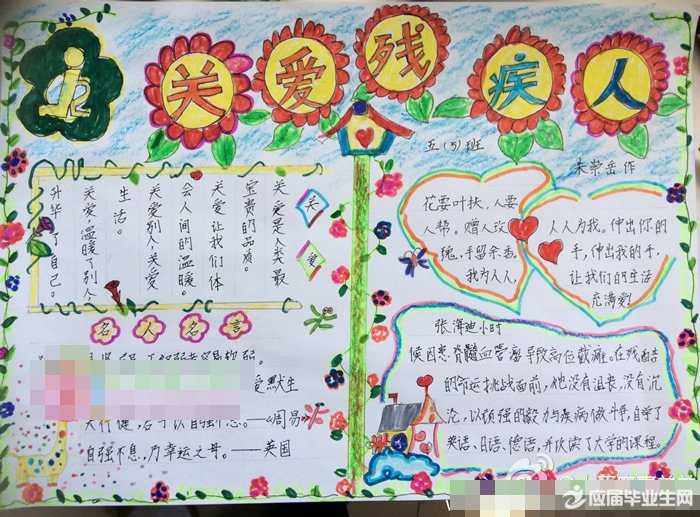 关爱残疾人
五(5)班
关爱是人类最
宝贵的品质。
关爱让我们体
会人间的温暖。
关爱别人,关爱
生活。
关爱,温暖了别人,
升华了自己。
关
爱
花要叶扶,人要
人帮。赠人玫
瑰,手留余香。
我为人人,
人人为我。伸出你的
手,伸出我的手,
让我们的生活
充满爱!
名人名言
爱默生
天行健,君子以自强不息。——《周易》
自强不息,乃幸运之母。——英国
张海迪小时
候因患脊髓血管瘤导致高位截瘫。在残酷
的命运挑战面前,他没有沮丧,没有沉
沦,以顽强的毅力与疾病做斗争,自学了
英语、日语、德语,并攻读了大学的课程。
应届毕业生网